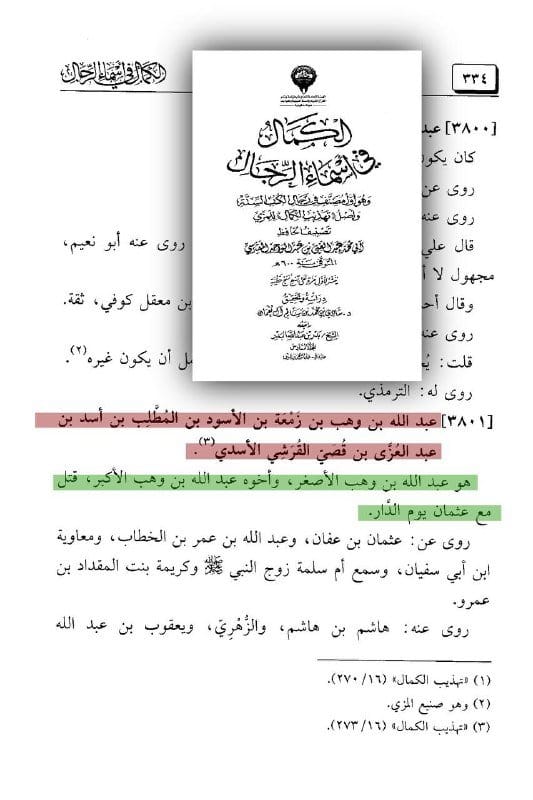 ٣٣٤
الكمال في أسماء الرجال
[٣٨٠٠] عبد
كان يكون
روى عن
روى عنه
قال علي
روى عنه أبو نعيم،
مجهول لا أ
وقال أحـ
بن معقل كوفي، ثقة.
روى عنه
قلت: يُحـ
ـمل أن يكون غيره(٢).
روى له: الترمذي.
الكمال
في أسماء الرجال
وهو أول مصنف في رجال الكتب الستة
وأصل «تهذيب الكمال» للمزي
تصنيف الحافظ
أبي محمد عبد الغني بن عبد الواحد المقدسي
المتوفى سنة ٦٠٠هـ
دراسة وتحقيق
[٣٨٠١] عبد الله بن وهب بن زَمْعَة بن الأسود بن المُطَّلِب بن أسد بن
عبد العُزَّى بن قُصَيّ القُرَشي الأسدي(٣).
هو عبد الله بن وهب الأصغر، وأخوه عبد الله بن وهب الأكبر، قتل
مع عثمان يوم الدَّار.
روى عن: عثمان بن عفان، وعبد الله بن عمر بن الخطاب، ومعاوية
ابن أبي سفيان، وسمع أم سلمة زوج النبي ﷺ وكريمة بنت المقداد بن
عمرو.
روى عنه: هاشم بن هاشم، والزُّهْرِيّ، ويعقوب بن عبد الله
(١) «تهذيب الكمال» (١٦/ ٢٧٠).
(٢) وهو صنيع المزي.
(٣) «تهذيب الكمال» (١٦/ ٢٧٣).